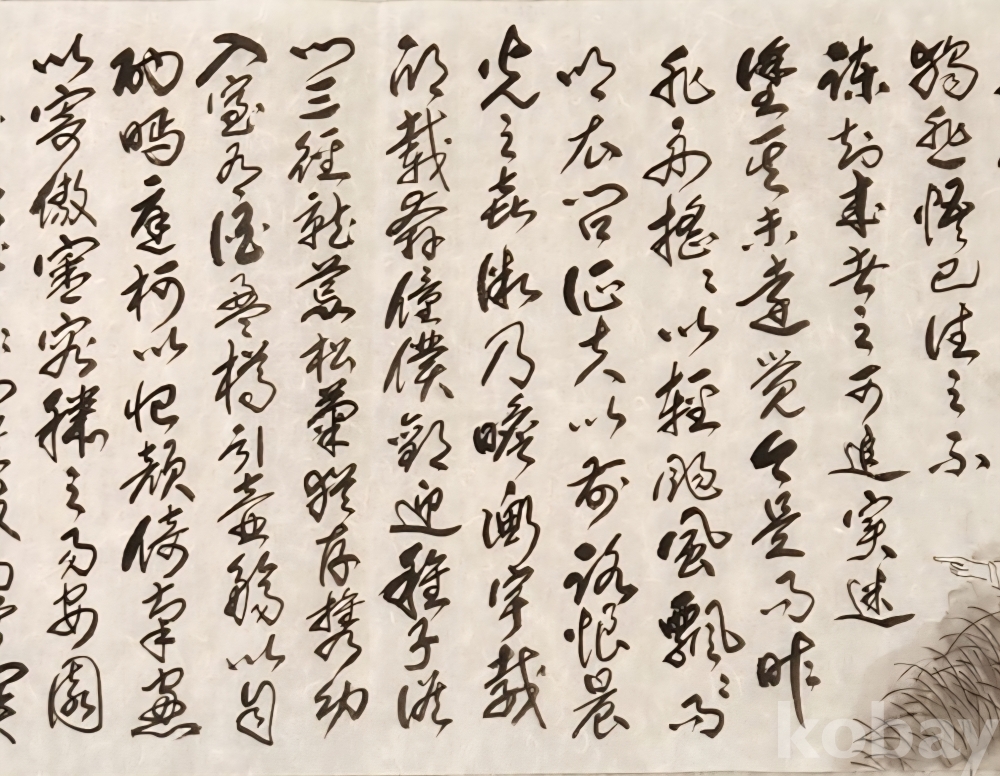 獨悲悟已往之不
諫知來者之可追實迷
塗其未遠覺今是而昨
非舟搖〻以輕颺風飄〻而
吹衣問征夫以前路恨晨
光之熹微乃瞻衡宇載
欣載奔僮僕歡迎稚子候
門三徑就荒松菊猶存攜幼
入室有酒盈樽引壺觴以自
酌眄庭柯以怡顏倚南窓
以寄傲審容膝之易安園
kobay